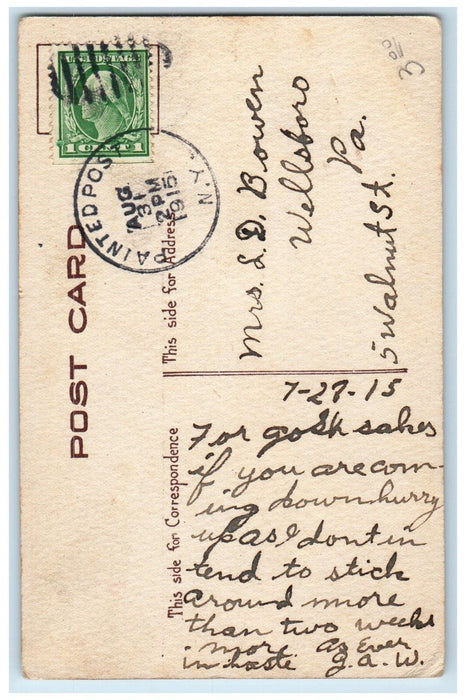 U.S. POSTAGE
1 CENT 1
PAINTED POST N.Y.
AUG
31
2 PM
1915
POST CARD
This side for Address
Mrs. L. D. Bowen
Wellsboro
Pa.
5 Walnut St.
This side for Correspondence
7-27-15
For gosh sakes
if you are com-
ing down hurry
up as I dont in
tend to stick
around mmore
than two weeks
more. As Ever
in haste J.A.W.